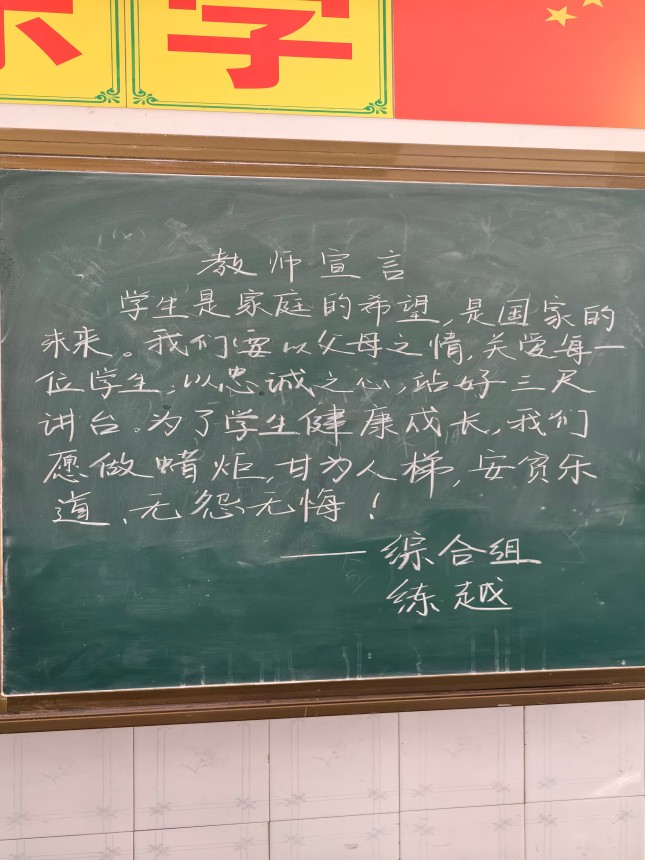 学
教师宣言
学生是家庭的希望,是国家的
未来。我们要以父母之情,关爱每一
位学生;以忠诚之心,站好三尺
讲台。为了学生健康成长,我们
愿做蜡炬,甘为人梯,安贫乐
道、无怨无悔!
——综合组
练越